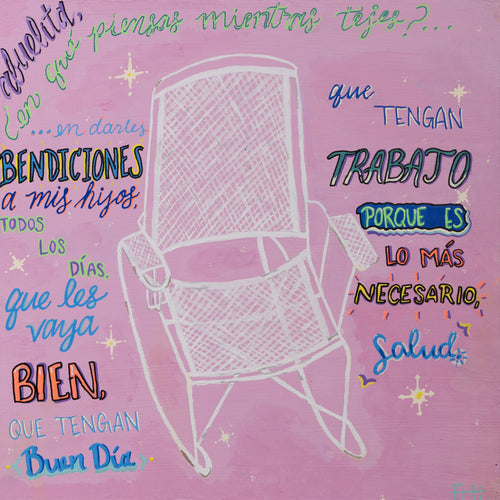 abuelita,
¿en qué piensas mientras tejes?...
...en darles
BENDICIONES
a mis hijos,
TODOS
LOS
DÍAS,
que les
vaya
BIEN,
QUE TENGAN
Buen Día
que
TENGAN
TRABAJO
PORQUE ES
LO MÁS
NECESARIO,
Salud.